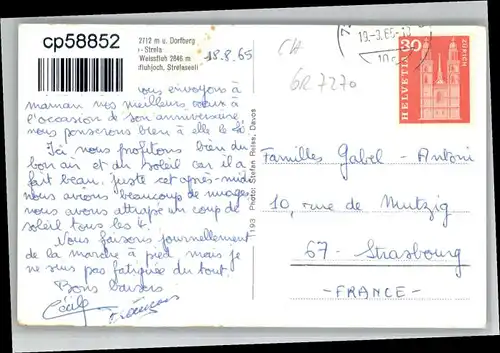 cp58852
2712 m u. Dorfberg
- Strela
Weissfluh 2846 m
fluhjoch, Strelaseeli
18.8.65
CH
GR 7270
HELVETIA 30
ZÜRICH
vous envoyons à
maman nos meilleurs vœux à
l'occasion de son anniversaire
nous penserons bien à elle le
Ici nous profitons bien du
bon air et du soleil car il a
fait beau, juste cet après-midi
nous avions beaucoup de nuages
nous avons attrapé un coup de
soleil tous les 4.
Nous faisons journellement
de la marche à pied, mais je
ne suis pas fatiguée du tout.
Bons baisers
Cécile
François
1193 Photo: Stefan Reiss, Davos
Familles Gabel - Antoni
10, rue de Mutzig
67 - Strasbourg
- FRANCE -